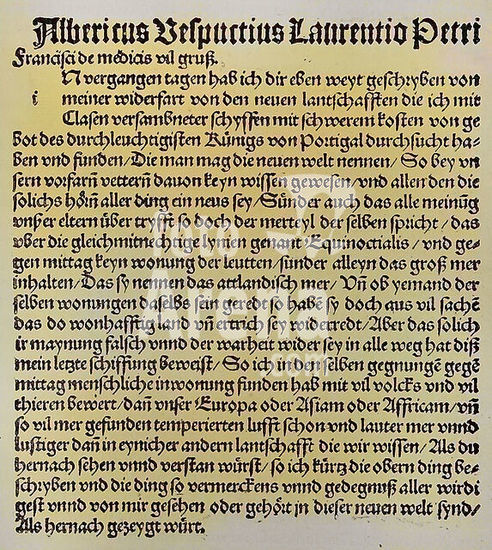 Albericus Vespuctius Laurentio Petri
Francisci de medicis vil gruß.
N vergangen tagen hab ich dir eben weyt geschryben von
i meiner widerfart von den neuen lantschafften die ich mit
Clasen versambneter schyffen mit schwerem kosten von ge
bot des durchleuchtigisten Künigs von Portigal durchsucht ha-
ben vnd funden/Die man mag die neuen welt nennen/So bey vn
sern vorfarn̄ vettern̄ dauon keyn wissen gewesen/vnd allen den die
solichs hörn̄ aller ding ein neus sey/Sünder auch das alle meinūg
vnßer eltern über trysst so doch der merteyl der selben spricht/das
vber die gleichmitnechtige lynien genant Equinoctialis/vnd ge-
gen mittag keyn wonung der leutten/sünder alleyn das groß mer
inhalten/Das sy nennen das attlandisch mer/Vn̄ ob yemand der
selben wonungen daselbs sein geredt so habē sy doch aus vil sachē
das do wonhafftig land vn̄ ertrich sey widerredt/Aber das solich
ir maynung falsch vnnd der warheit wider sey in alle weg hat diß
mein letzte schiffung beweist/So ich in den selben gegnungē gegē
mittag menschliche inwonung funden hab mit vil volcks vnd vil
thieren bewert/dan̄ vnser Europa oder Asiam oder Affricam/vn̄
so vil mer gefunden temperierten lufft schon vnd lauter mer vnnd
lustiger dan̄ in eynicher andern lantschafft die wir wissen/Als du
hernach sehen vnnd verstan würst/so ich kürtz die obern ding be-
schryben vnd die ding so vermerckens vnnd gedegnuß aller wirdi
gest vnnd von mir gesehen oder gehört in dieser neuen welt synd/
Als hernach gezeygt würt.